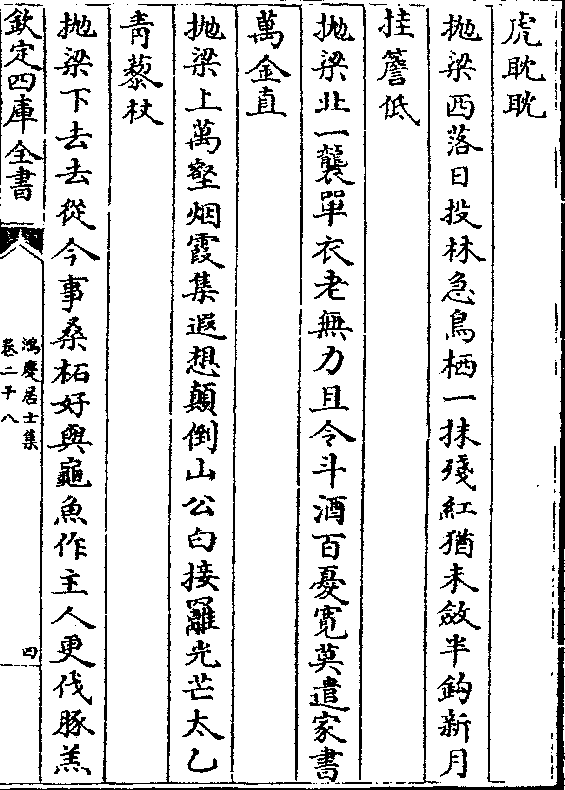 虎眈眈
抛梁西落日投林急鳥栖一抹殘紅猶未斂半鈎新月
挂簷低
抛梁北一襲單衣老無力且令斗酒百憂寛莫遣家書
萬金直
抛梁上萬壑烟霞集遐想顛倒山公白接䍦光芒太乙
青藜杖
抛梁下去去從今事桑柘好與龜魚作主人更伐豚羔
欽定四庫全書
鴻慶居士集
卷二十八
四